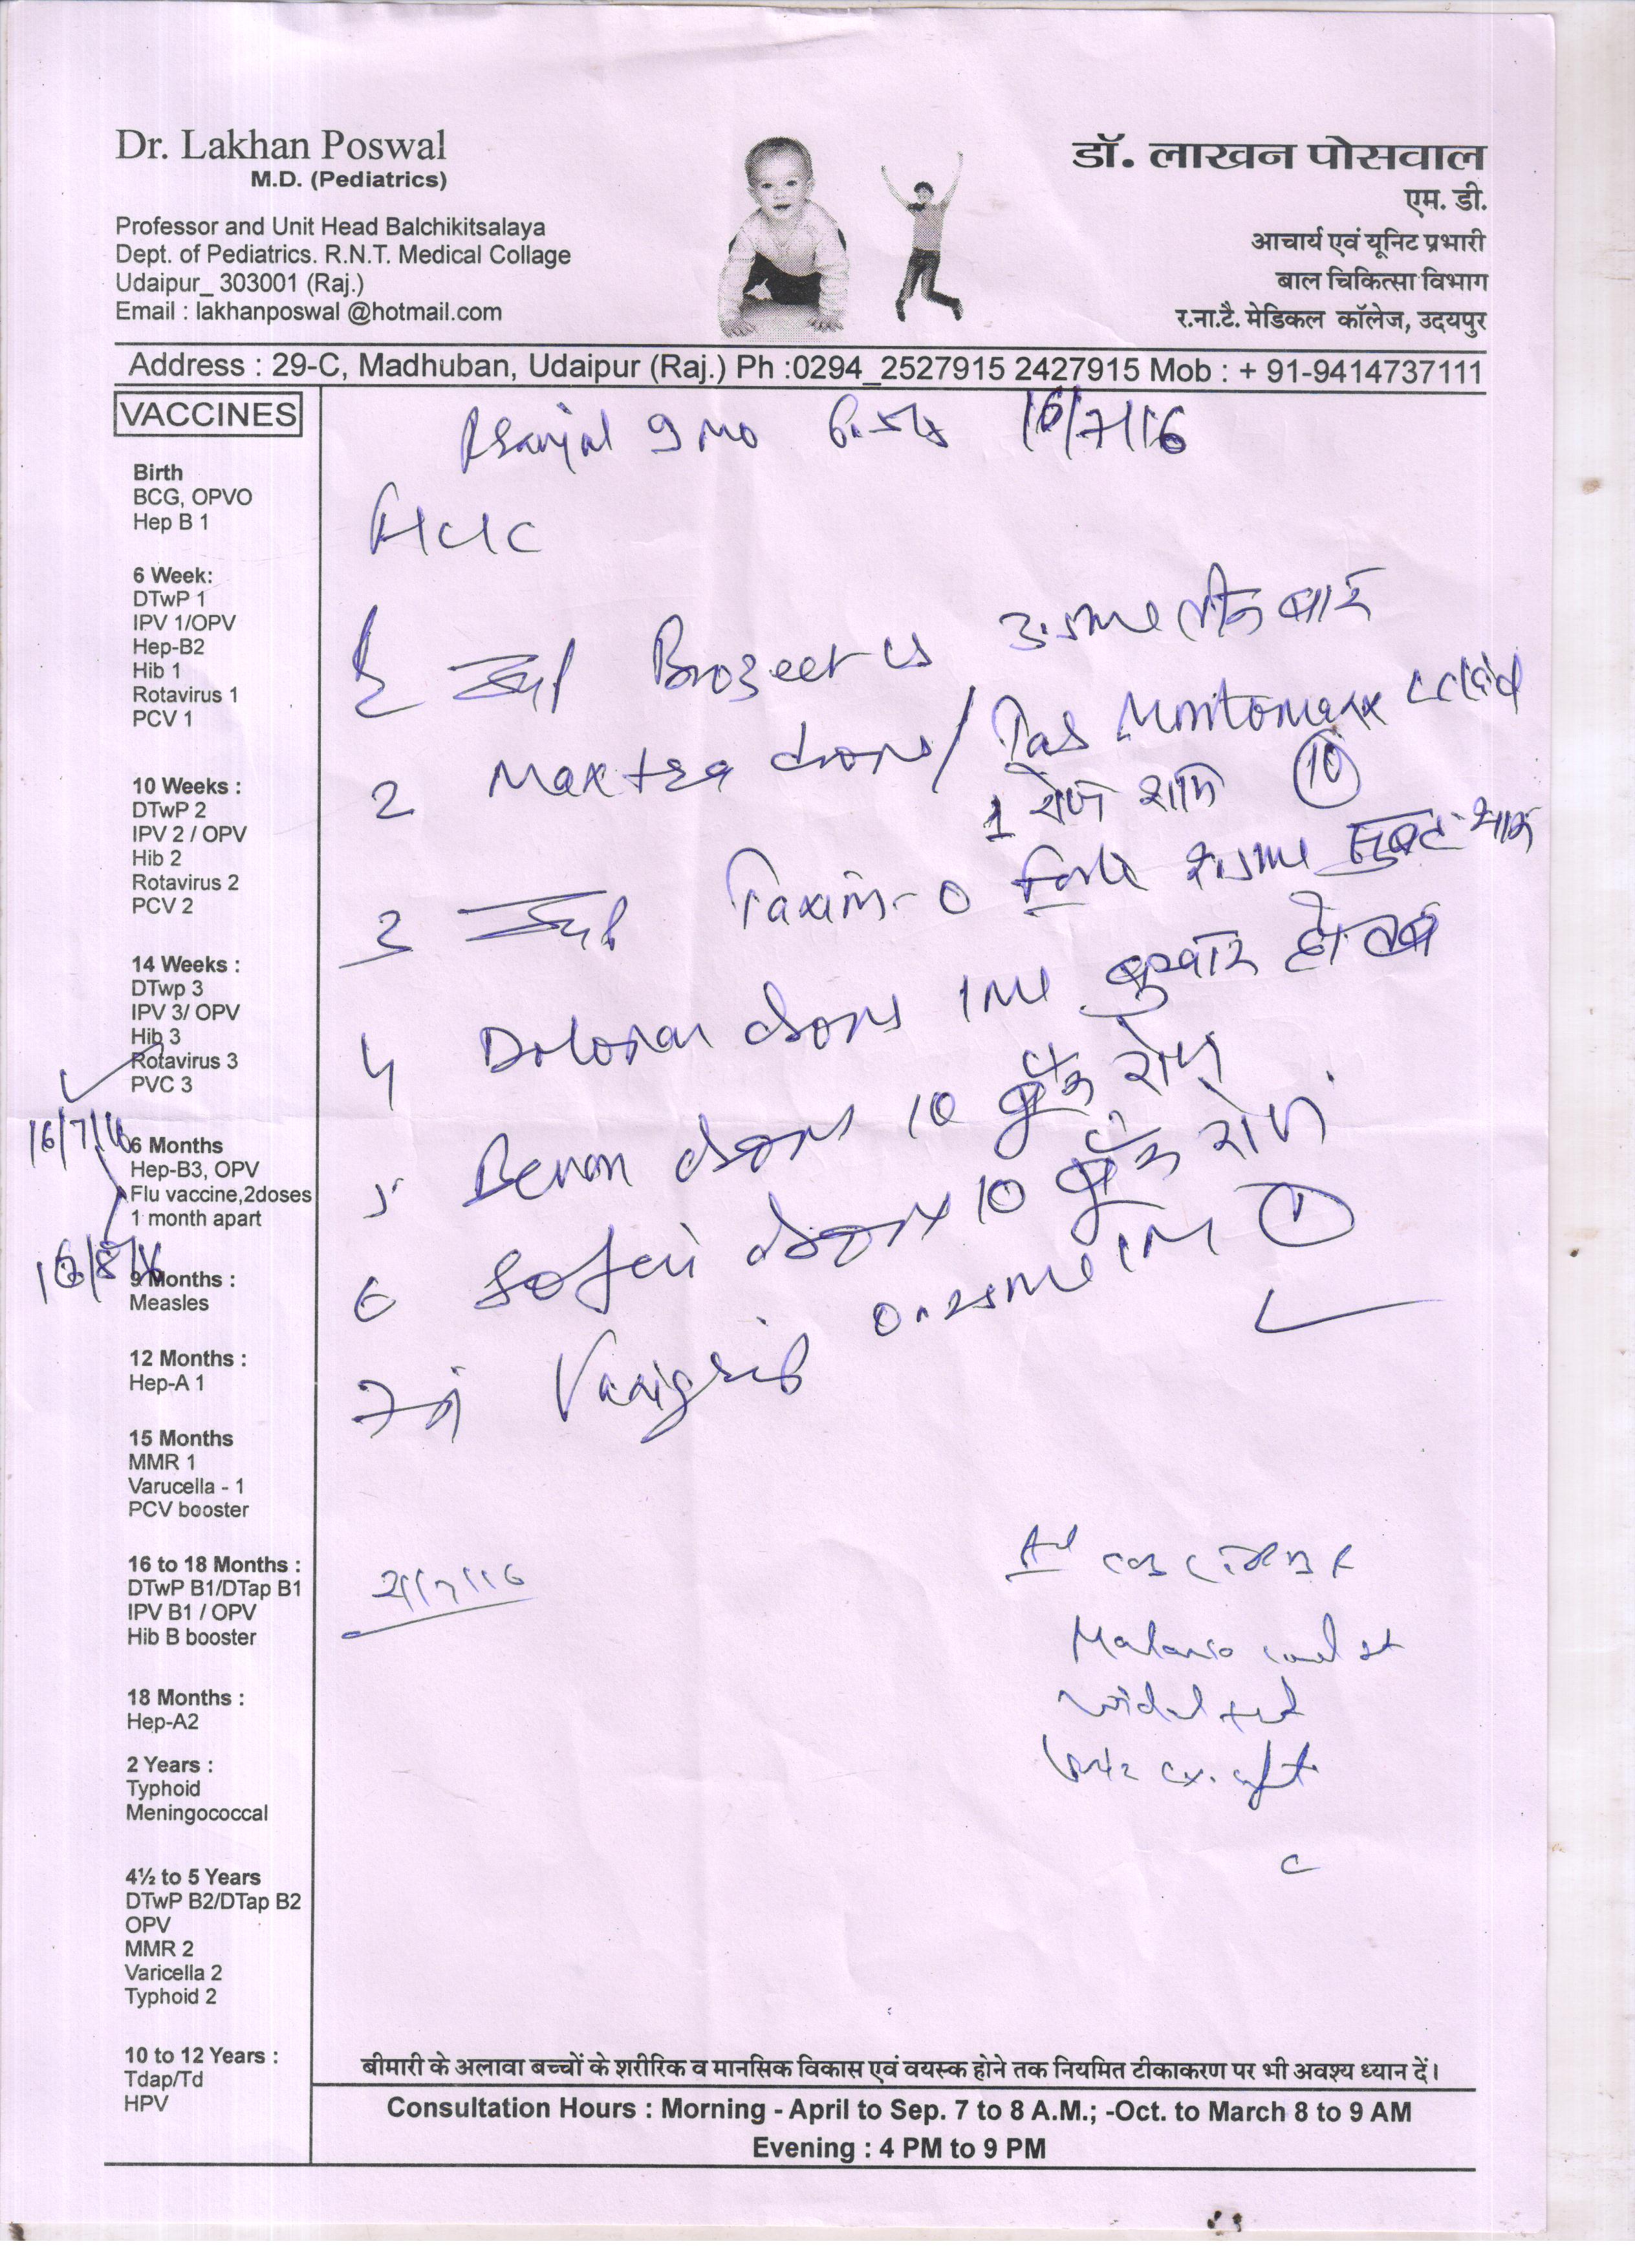 Dr. Lakhan Poswal
M.D. (Pediatrics)
Professor and Unit Head Balchikitsalaya
Dept. of Pediatrics. R.N.T. Medical Collage
Udaipur_ 303001 (Raj.)
Email : lakhanposwal @hotmail.com
डॉ. लाखन पोसवाल
एम. डी.
आचार्य एवं यूनिट प्रभारी
बाल चिकित्सा विभाग
र.ना.टै. मेडिकल कॉलेज, उदयपुर
Address : 29-C, Madhuban, Udaipur (Raj.) Ph :0294_2527915 2427915 Mob : + 91-9414737111
VACCINES
Birth
BCG, OPVO
Hep B 1
6 Week:
DTwP 1
IPV 1/OPV
Hep-B2
Hib 1
Rotavirus 1
PCV 1
10 Weeks :
DTwP 2
IPV 2 / OPV
Hib 2
Rotavirus 2
PCV 2
14 Weeks :
DTwp 3
IPV 3/ OPV
Hib 3
Rotavirus 3
PVC 3
16/7/16
6 Months
Hep-B3, OPV
Flu vaccine,2doses
1 month apart
16/8/16
9 Months :
Measles
12 Months :
Hep-A 1
15 Months
MMR 1
Varucella - 1
PCV booster
16 to 18 Months :
DTwP B1/DTap B1
IPV B1 / OPV
Hib B booster
18 Months :
Hep-A2
2 Years :
Typhoid
Meningococcal
4½ to 5 Years
DTwP B2/DTap B2
OPV
MMR 2
Varicella 2
Typhoid 2
10 to 12 Years :
Tdap/Td
HPV
9 mo 16/7/16
Brozeet LS तीन बार
2 Maxtra drops / Tab Montemax
1 रोज शाम 10
3 Taxim-O Forte सुबह शाम
4 drops 1ml बुखार हो तब
5 drops 10 बूँद रोज
6 drops 10 बूँद रोज
7 Vaxigrip 0.25ml IM 1
Malaria
widal test
बीमारी के अलावा बच्चों के शरीरिक व मानसिक विकास एवं वयस्क होने तक नियमित टीकाकरण पर भी अवश्य ध्यान दें।
Consultation Hours : Morning - April to Sep. 7 to 8 A.M.; -Oct. to March 8 to 9 AM
Evening : 4 PM to 9 PM